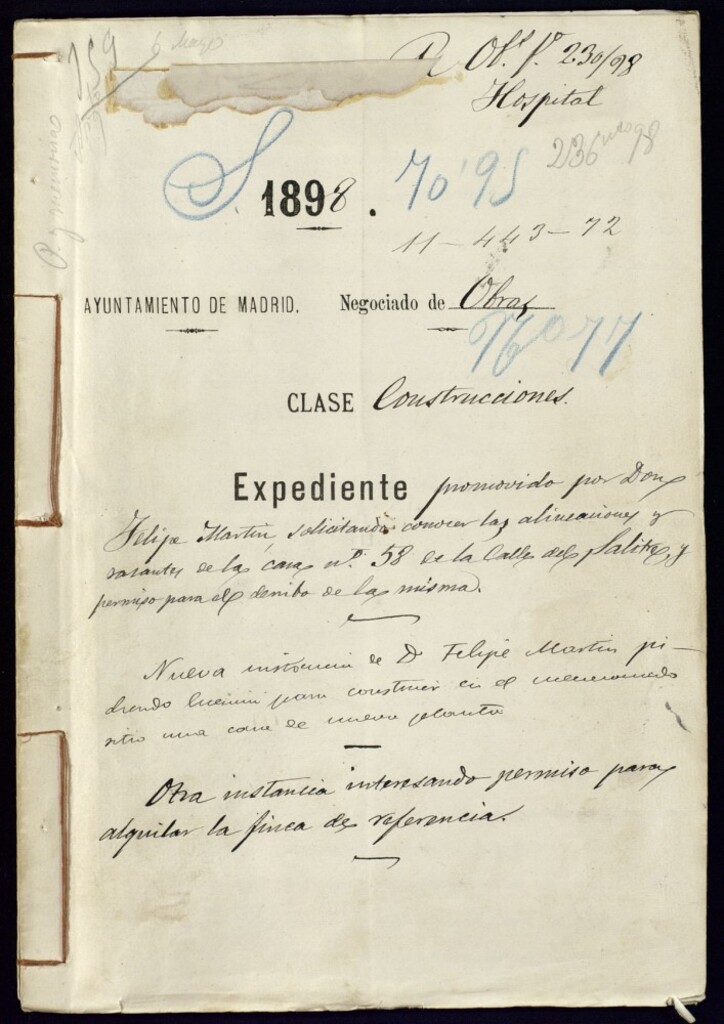 159
6 Mayo
R. Obs. Pº 230/98
Hospital
236 98
S. 1898. 70'95
11-443-72
AYUNTAMIENTO DE MADRID. Negociado de Obras
76º77
CLASE Construcciones.
Expediente promovido por Don
Felipe Martin, solicitando conocer las alineaciones y
rasantes de la casa nº 58 de la Calle del Salitre, y
permiso para el derribo de la misma.
Nueva instancia de Dn Felipe Martin pi-
diendo licencia para construir en el mencionado
sitio una casa de nueva planta
Otra instancia interesando permiso para
alquilar la finca de referencia.